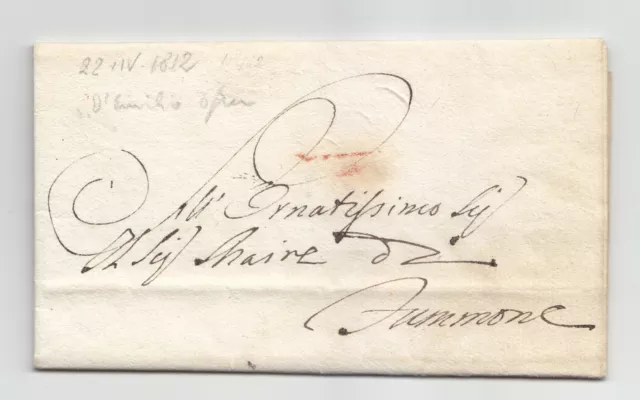 22 IV. 1812
D'Emilio
All' Ornatissimo Sig
Il Sig Maire di
Fummone